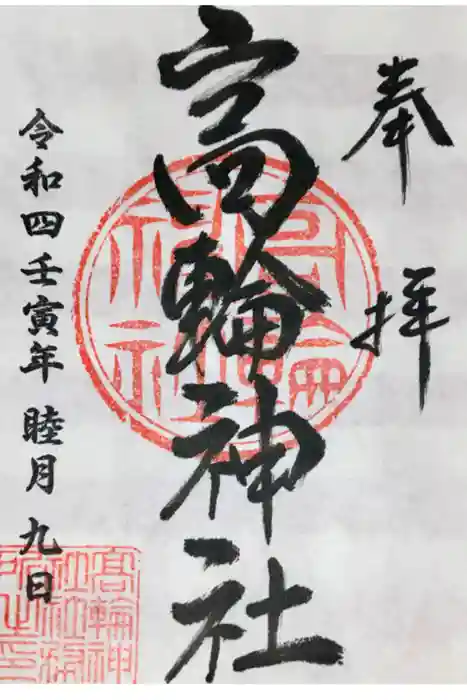 奉拝
高輪神社
令和四壬寅年 睦月 九日
高輪神社